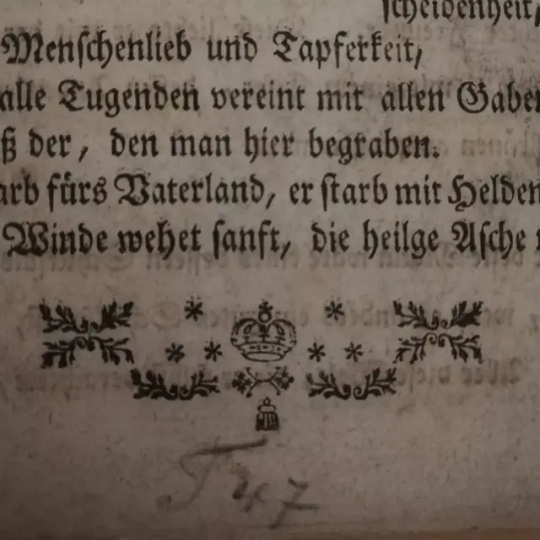 scheidenheit,
Menschenlieb und Tapferkeit,
alle Tugenden vereint mit allen Gaben
ß der, den man hier begraben.
arb fürs Vaterland, er starb mit Helden
Winde wehet sanft, die heilge Asche
T 47